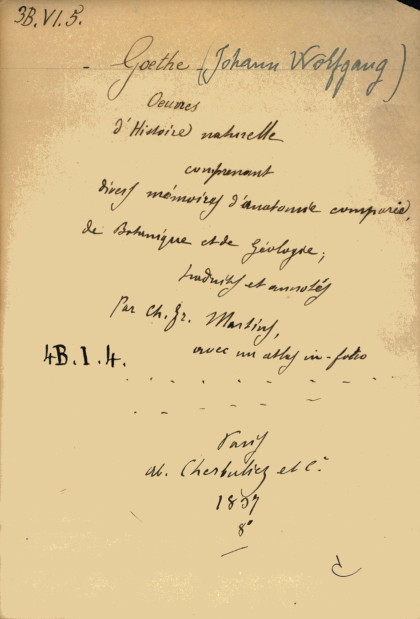 3B.VI.5.
- Goethe (Johann Wolfgang)
Oeuvres
d'Histoire naturelle
comprenant
divers mémoires d'anatomie comparée,
de Botanique et de Géologie;
traduits et annotés
Par Ch. Fr. Martins,
4B.I.4.
avec un atlas in-folio
Paris
ab. Cherbuliez et Cie
1837
8°